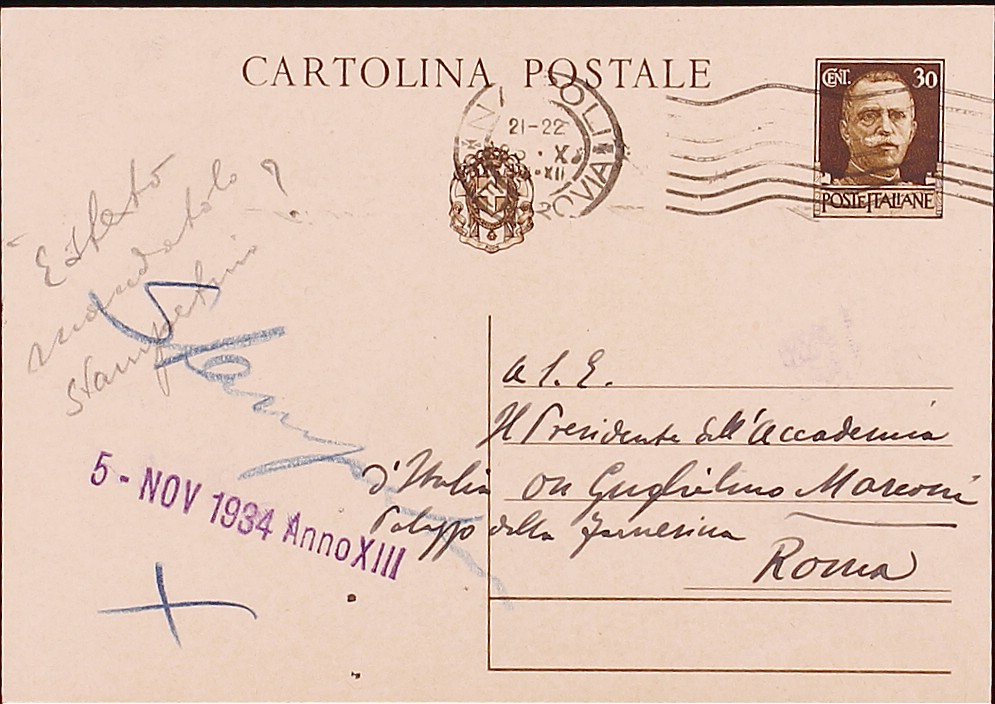 CARTOLINA POSTALE
CENT. 30
POSTE ITALIANE
NAPOLI
21-22
X
XII
FERROVIA
È stato
mandato lo ?
stampatino
5 - NOV 1934 Anno XIII
a S. E.
Il Presidente dell'Accademia
d'Italia on Guglielmo Marconi
Palazzo della Farnesina
Roma